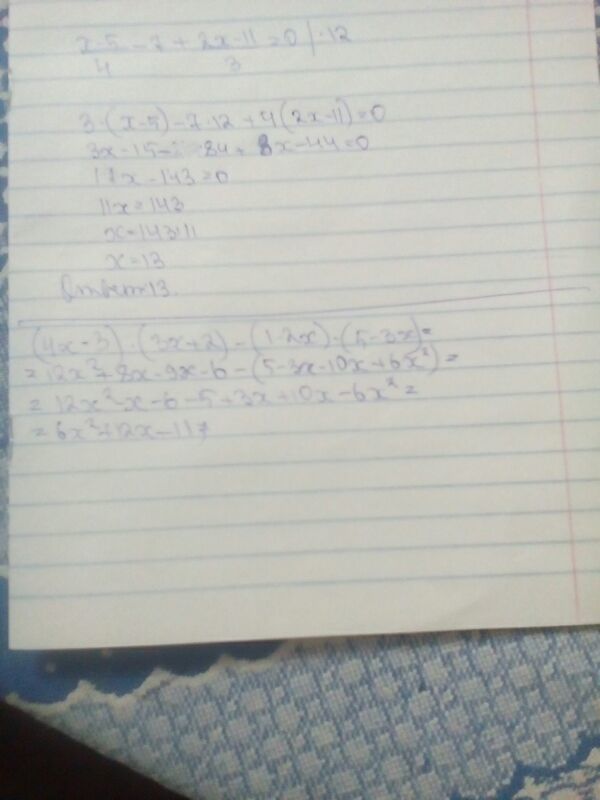 x-5 - 7 + 2x-11 = 0 | ·12
4 3
3·(x-5)-7·12+4(2x-11)=0
3x-15-84+8x-44=0
11x-143=0
11x=143
x=143:11
x=13
Ответ:13.
(4x-3)·(3x+2)-(1-2x)·(5-3x)=
=12x²+8x-9x-6-(5-3x-10x+6x²)=
=12x²-x-6-5+3x+10x-6x²=
=6x²+12x-11